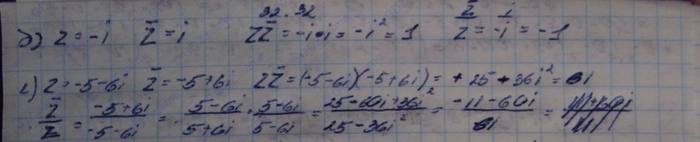 32.32
д) z = -i   z̄ = i   zz̄ = -i·i = -i² = 1   z̄/z = i/-i = -1
e) z = -5-6i   z̄ = -5+6i   zz̄ = (-5-6i)(-5+6i) = +25 - 36i² = 61
z̄/z = (-5+6i)/(-5-6i) = (5-6i)/(5+6i) · (5-6i)/(5-6i) = (25-60i+36i²)/(25-36i²) = (-11-60i)/61 =